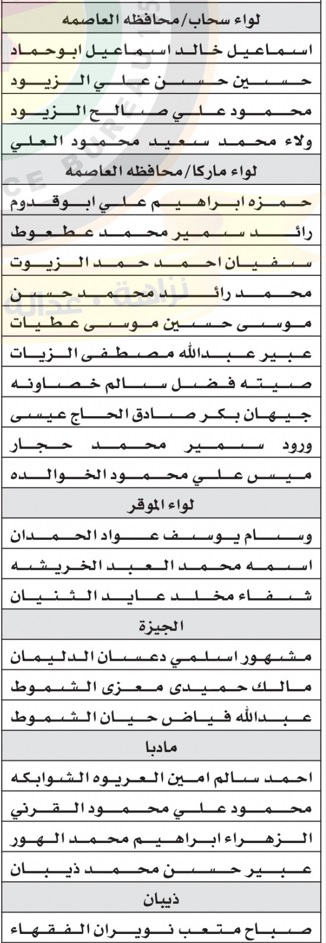 لواء سحاب/محافظه العاصمه
اسماعيل خالد اسماعيل ابوحماد
حسين حسن علي الزيود
محمود علي صالح الزيود
ولاء محمد سعيد محمود العلي
لواء ماركا/محافظه العاصمه
حمزه ابراهيم علي ابوقدوم
رائد سمير محمد عطعوط
سفيان احمد حمد الزيوت
محمد رائد محمد حسن
موسى حسين موسى عطيات
عبير عبدالله مصطفى الزيات
صيته فضل سالم خصاونه
جيهان بكر صادق الحاج عيسى
ورود سمير محمد حجار
ميس علي محمود الخوالده
لواء الموقر
وسام يوسف عواد الحمدان
اسمه محمد العبد الخريشه
شفاء مخلد عايد الثنيان
الجيزة
مشهور اسلمي دعسان الدليمان
مالك حميدى معزى الشموط
عبدالله فياض حيان الشموط
مادبا
احمد سالم امين العريوه الشوابكه
محمود علي محمود القرني
الزهراء ابراهيم محمد الهور
عبير حسن محمد ذيبان
ذيبان
صباح متعب نويران الفقهاء